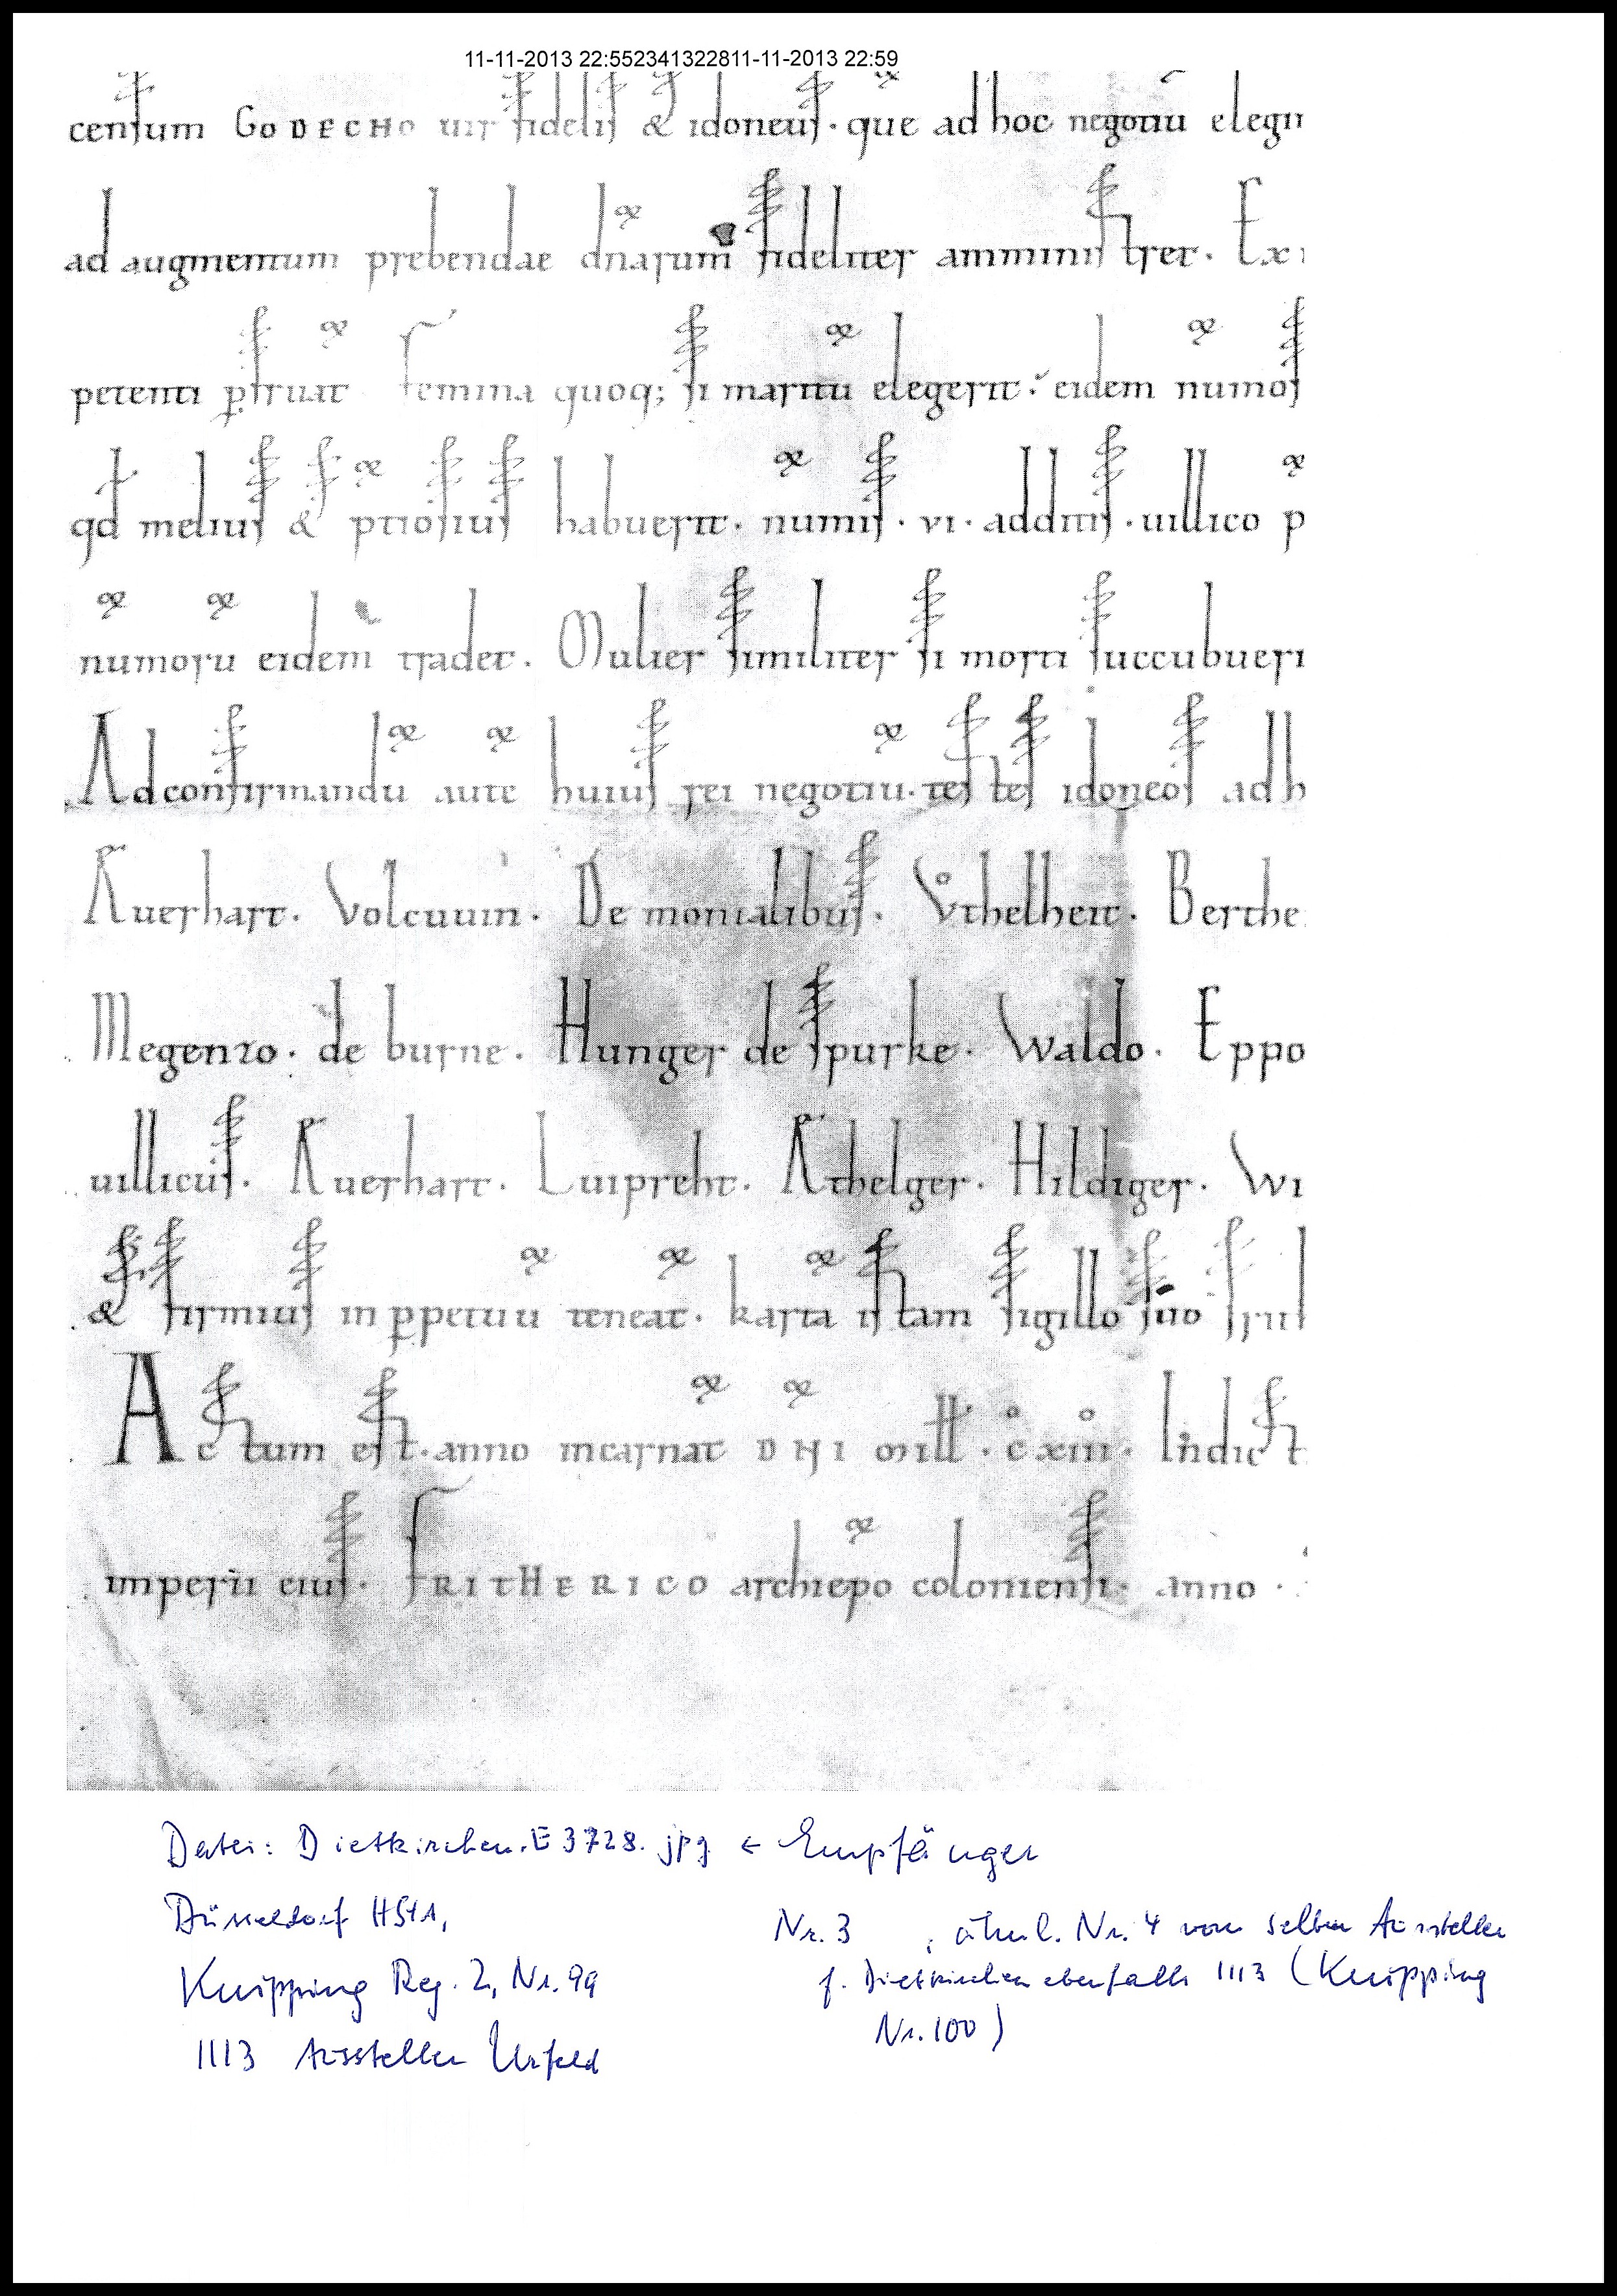 11-11-2013 22:552341322811-11-2013 22:59
censum GODECHO uir fidelis & idoneus. que ad hoc negotiū elegit
ad augmentum prebendae dn̄arum fideliter amministret. Ex
petenti p̱soluat Femina quoq; si maritū elegerit. eidem numos
qd melius & ptiosius habuerit. numis. vi. additis. uillico p
numorū eidem tradet. Mulier similiter si morti succubueri
Ad confirmandū autē huius rei negotiū. testes idoneos ad h
Auerhart. Volcuuin. De monialibus. Vͦthelheit. Berthe
Megenzo. de burne. Hunger de spurke. Waldo. Eppo
uillicus. Auerhart. Luipreht. Athelger. Hildiger. Wi
& firmius in p̱petuū teneat. kartā istam sigillo suo
Actum est. anno incarnat̄ DN̄I mill. c xiii. Indict
imperii eius. FRITHERICO archiep̄o coloniensi. anno.
Datei: Dietkirchen.E3728.jpg ← Empfänger
Düsseldorf HStA,
Nr. 3 , ähnl. Nr. 4 vom selben Aussteller
Knipping Reg. 2, Nr. 99
f. Dietkirchen ebenfalls 1113 (Knipping
Nr. 100)
1113 Aussteller Urfeld